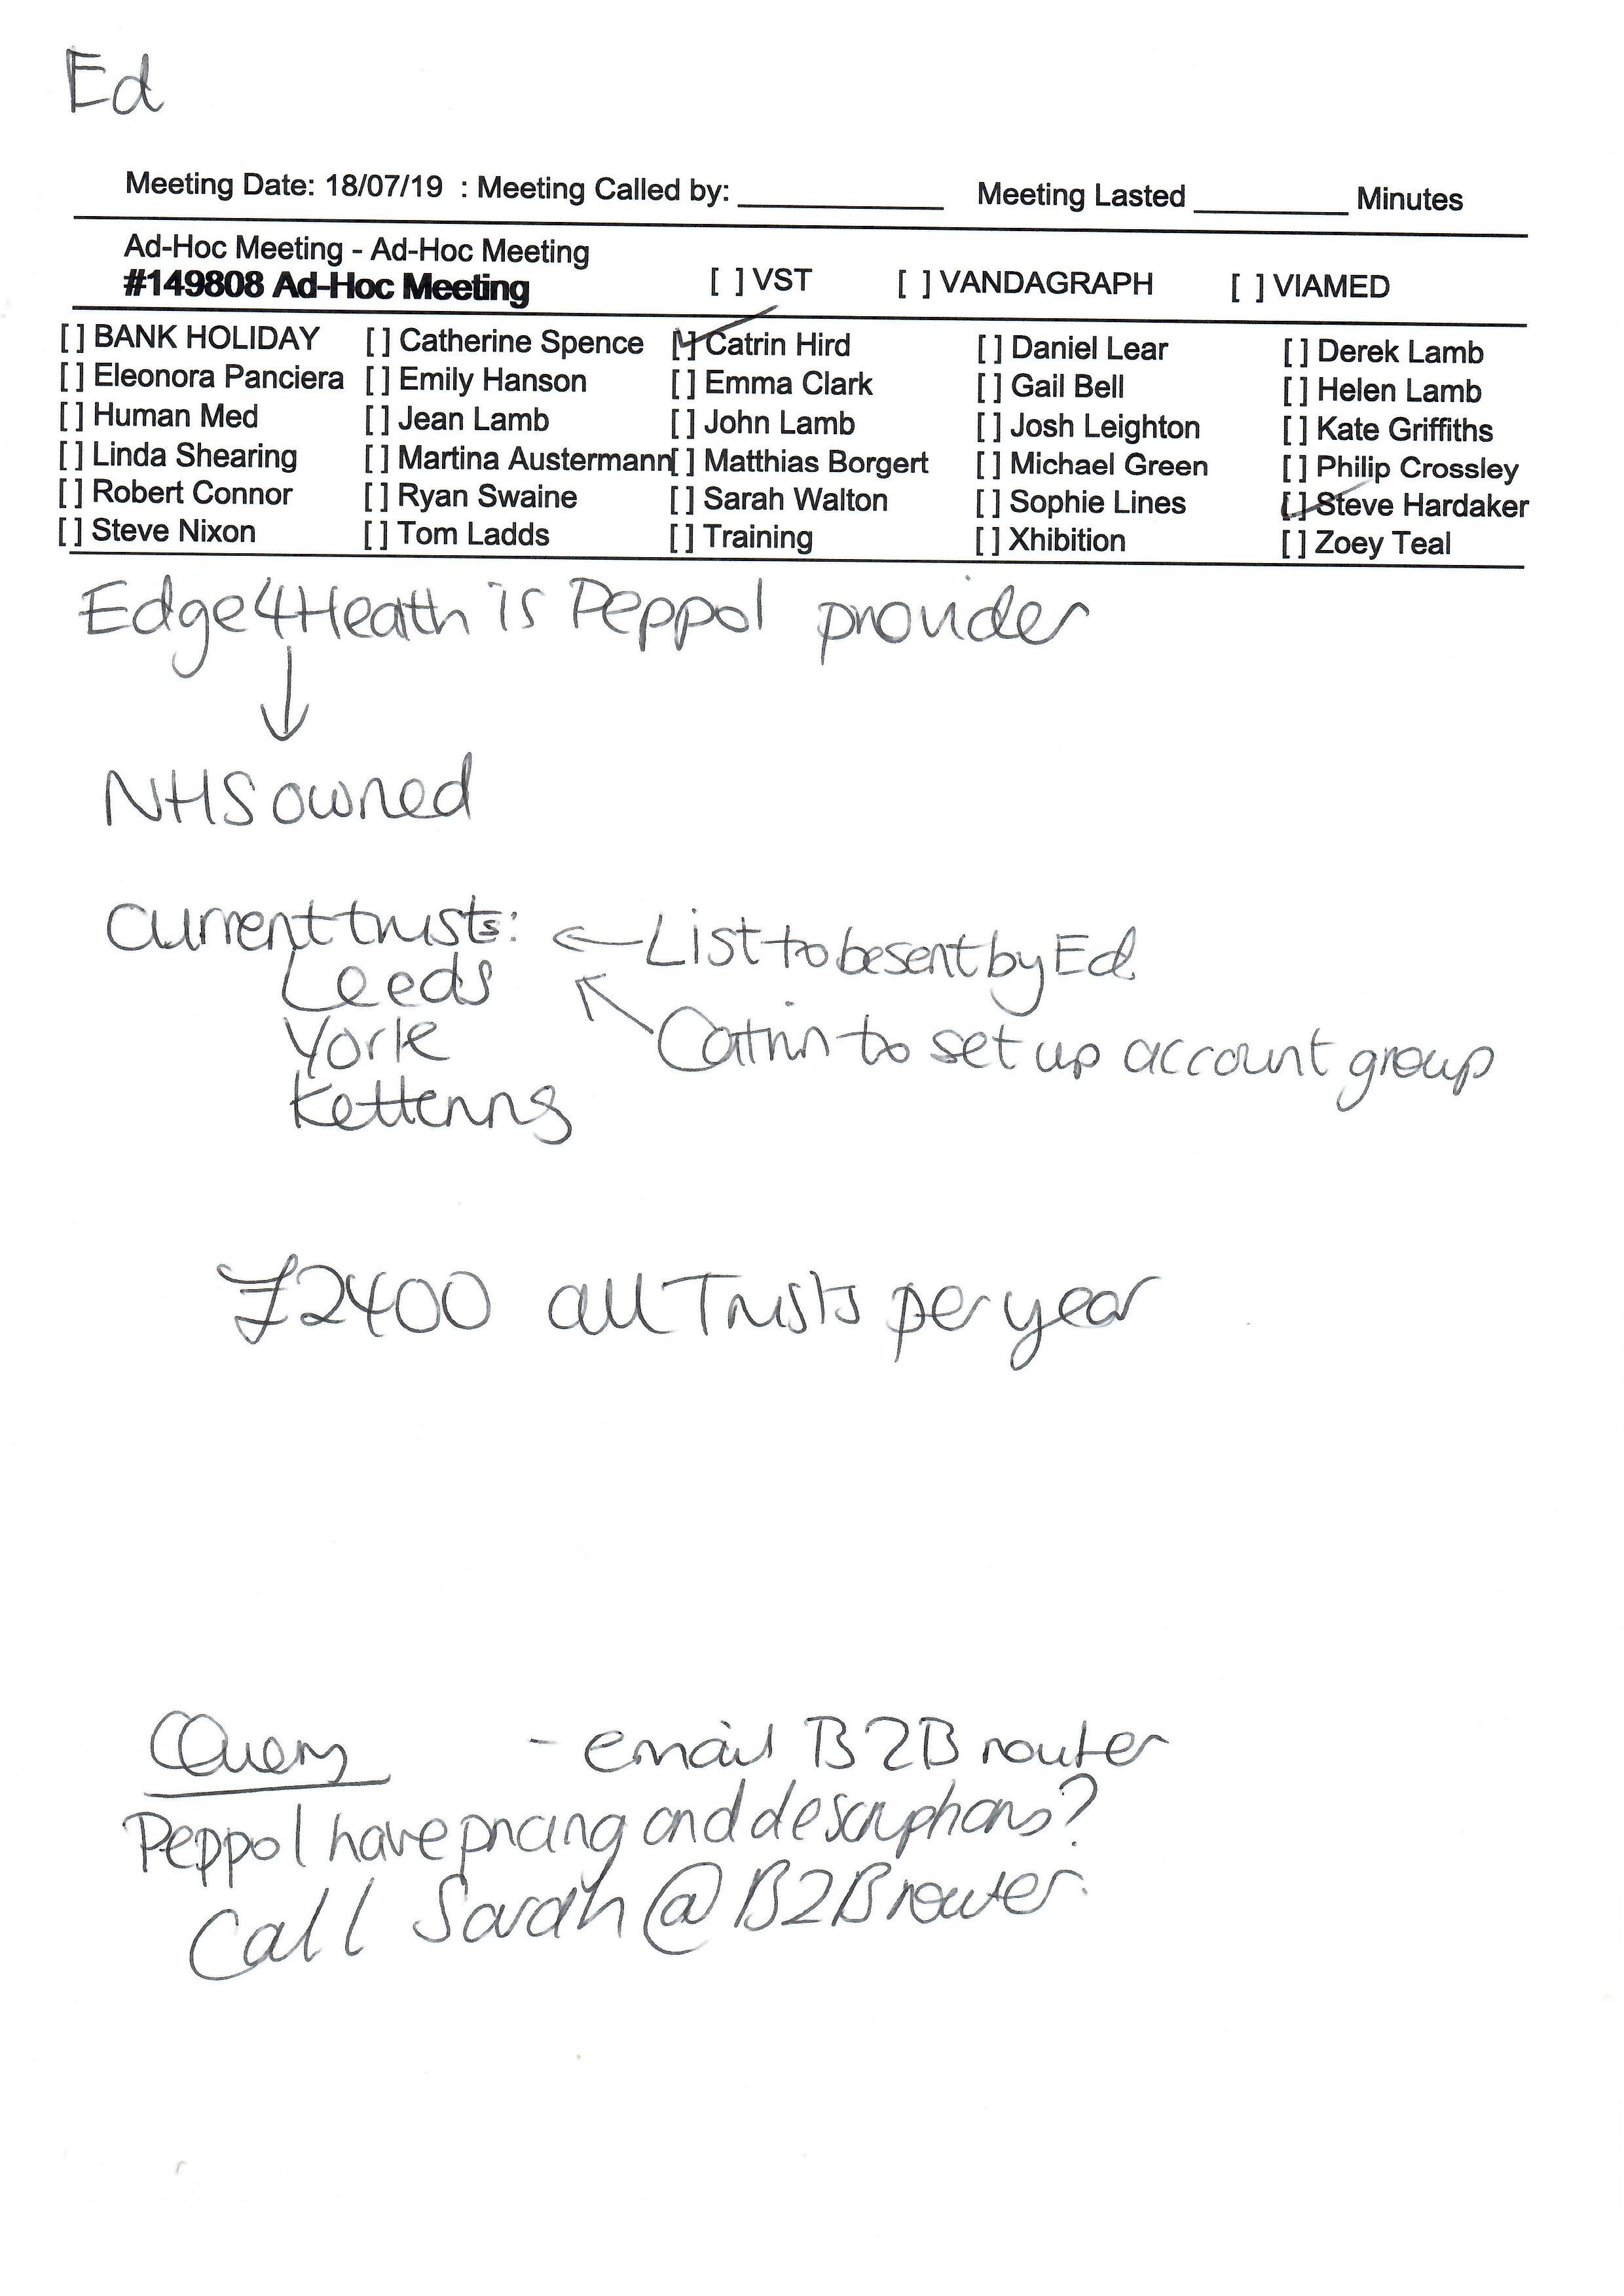 Ed
Meeting Date: 18/07/19 : Meeting Called by: ____________ Meeting Lasted _________ Minutes
Ad-Hoc Meeting - Ad-Hoc Meeting
#149808 Ad-Hoc Meeting [ ] VST [ ] VANDAGRAPH [ ] VIAMED
[ ] BANK HOLIDAY [ ] Catherine Spence [✓] Catrin Hird [ ] Daniel Lear [ ] Derek Lamb
[ ] Eleonora Panciera [ ] Emily Hanson [ ] Emma Clark [ ] Gail Bell [ ] Helen Lamb
[ ] Human Med [ ] Jean Lamb [ ] John Lamb [ ] Josh Leighton [ ] Kate Griffiths
[ ] Linda Shearing [ ] Martina Austermann [ ] Matthias Borgert [ ] Michael Green [ ] Philip Crossley
[ ] Robert Connor [ ] Ryan Swaine [ ] Sarah Walton [ ] Sophie Lines [✓] Steve Hardaker
[ ] Steve Nixon [ ] Tom Ladds [ ] Training [ ] Xhibition [ ] Zoey Teal
Edge4Heath is Peppol provider
↓
NHS owned
Current trusts: ← List to be sent by Ed
Leeds
York ↖ Catrin to set up account group
Kettering
£2400 all Trusts per year
Query - email B2B router
Peppol have pricing and descriptions?
Call Sarah @ B2B router.